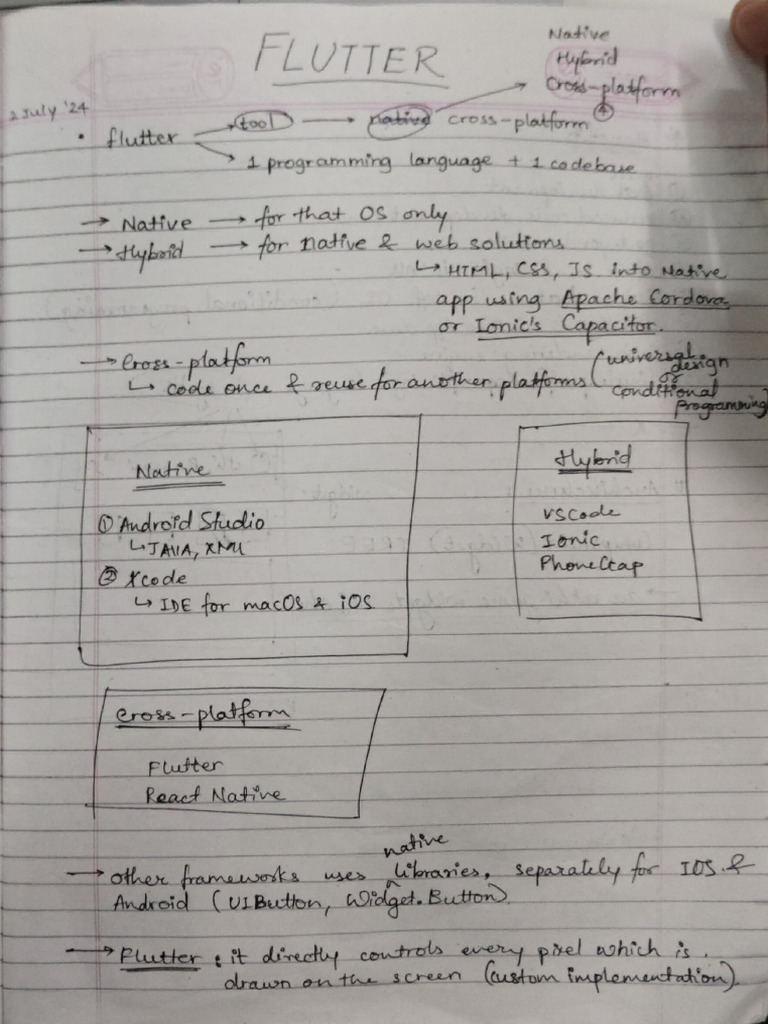 FLUTTER
Native
Hybrid
Cross-platform
2 July '24
• flutter → tool → native cross-platform
→ 1 programming language + 1 codebase
→ Native → for that OS only
→ Hybrid → for native & web solutions
↳ HTML, CSS, JS into Native
app using Apache Cordova
or Ionic's Capacitor.
→ Cross-platform
↳ code once & reuse for another platforms (universal design
or
Conditional
programming)
Native
① Android Studio
↳ JAVA, XML
② Xcode
↳ IDE for macOS & iOS
Hybrid
VSCode
Ionic
PhoneGap
Cross-platform
Flutter
React Native
→ other frameworks uses native libraries, separately for IOS &
Android (UIButton, Widget.Button).
→ Flutter : it directly controls every pixel which is
drawn on the screen (custom implementation).